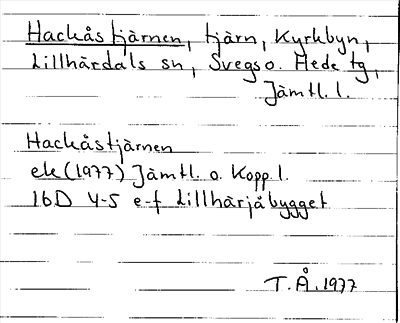 Hackåstjärnen, tjärn, Kyrkbyn,
Lillhärdals sn, Svegs o. Hede tg,
Jämtl. l.
Hackåstjärnen
ek (1977) Jämtl. o. Kopp. l.
16D 4-5 e-f Lillhärjåbygget
T. Å. 1977